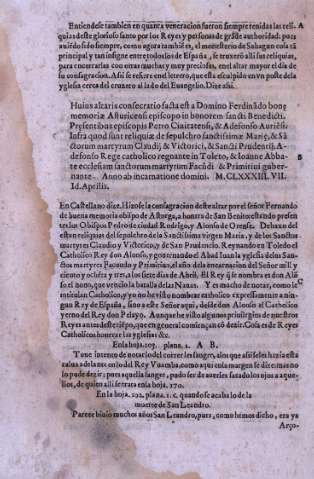 Entiendese tambien en quanta veneracion fueron siempre tenidas las reli- A
quias deste glorioso santo por los Reyes y personas de grãde authoridad: pues
auiẽdo sido siempre, como agora tambiẽ es, el monesterio de Sahagun cosa tã
principal y tan insigne entre todos los de España, se truxerõ alli sus reliquias,
para encerrarlas con otras muchas y muy preciosas, en el altar mayor el dia de
su consagracion. Assi se refiere en el letrero, que esta esculpido en vn poste de la
yglesia cerca del cruzero al lado del Euangelio. Dize assi.
Huius altaris consecratio facta est a Domino Ferdinãdo bonę
memoriæ Asturicensi episcopo in honorem sancti Benedicti.
Presentibus episcopis Petro Ciuitatensi, & Adefonso Auriẽse
Infra quod sunt reliquiæ de sepulcro sanctissimæ Marię, & Sã
ctorum martyrum Claudij & Victorici, & Sancti Prudentij. A-
defonso Rege catholico regnante in Toleto, & Ioanne Abba-
te ecclesiam sanctorum martyrum Facũdi & Primitiui guber-
nante. Anno ab incarnatione domini. M. CLXXXIII. VII.
Id. Aprilis.
En Castellano dize. Hizose la consagracion deste altar por el señor Fernando
de buena memoria obispo de Astorga, a honra de San Benito: estando presen
tes los Obispos Pedro de ciudad Rodrigo, y Alonso de Orense. Debaxo del
estan reliquias del sepulchro de la Santissima virgen Maria, y de los Santos
martyres Claudio y Victorico, y de San Prudencio. Reynando en Toledo el
Catholico Rey don Alonso, y gouernando el Abad Iuan la yglesia delos San-
ctos martyres Facundo y Primitiuo, el año dela incarnacion del Señor mill y
ciento y ochẽta y tres, a los siete dias de Abril. El Rey q̃ se nombra es don Alõ
so el nono, que vencio la batalla de las Nauas. Y es mucho de notar, como le C
intitulan Catholico, y yo no he visto nombrar catholico expressamente a nin-
gun Rey de España, sino a este Señor aqui, desde don Alonso el Catholico
yerno del Rey don Pelayo. Aunque he visto algunos priuilegios de nuestros
Reyes antes deste tiẽpo, que en general comiençan cõ dezir. Cosa es de Reyes
Catholicos honrar las yglesias &c.
En la hoja. 205. plana. 2. A B.
Tuue intento de notar lo del correr les sangre, aun que assi seles hazia esta
salua adelante en lo del Rey Vuamba, como aqui en la margen se dize: mas no
lo pude dezir: pues aquella sangre, pudo ser de auerles sacado los ojos a aque-
llos, de quien alli se trata en la hoja. 170.
En la hoja. 192. plana. 1. C. quando se acaba lo de la
muerte de San Leandro.
Parece biuio muchos años San Leandro, pues, como hemos dicho, era ya
Arço-